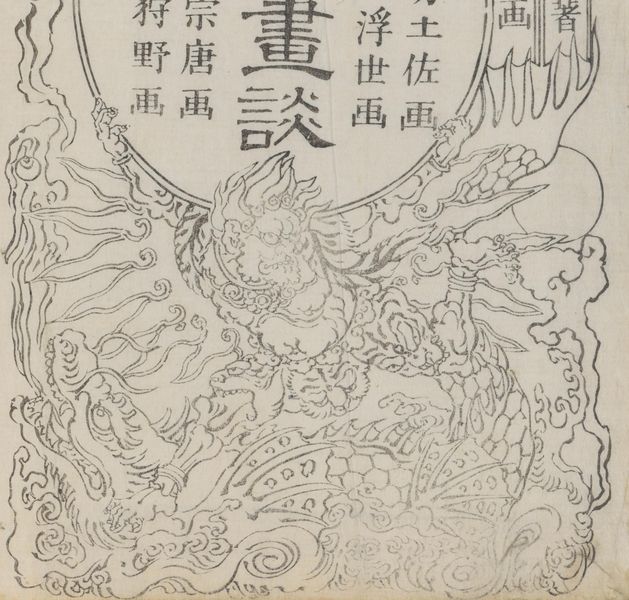 著
画
土佐画
浮世画
畫談
宗唐画
狩野画